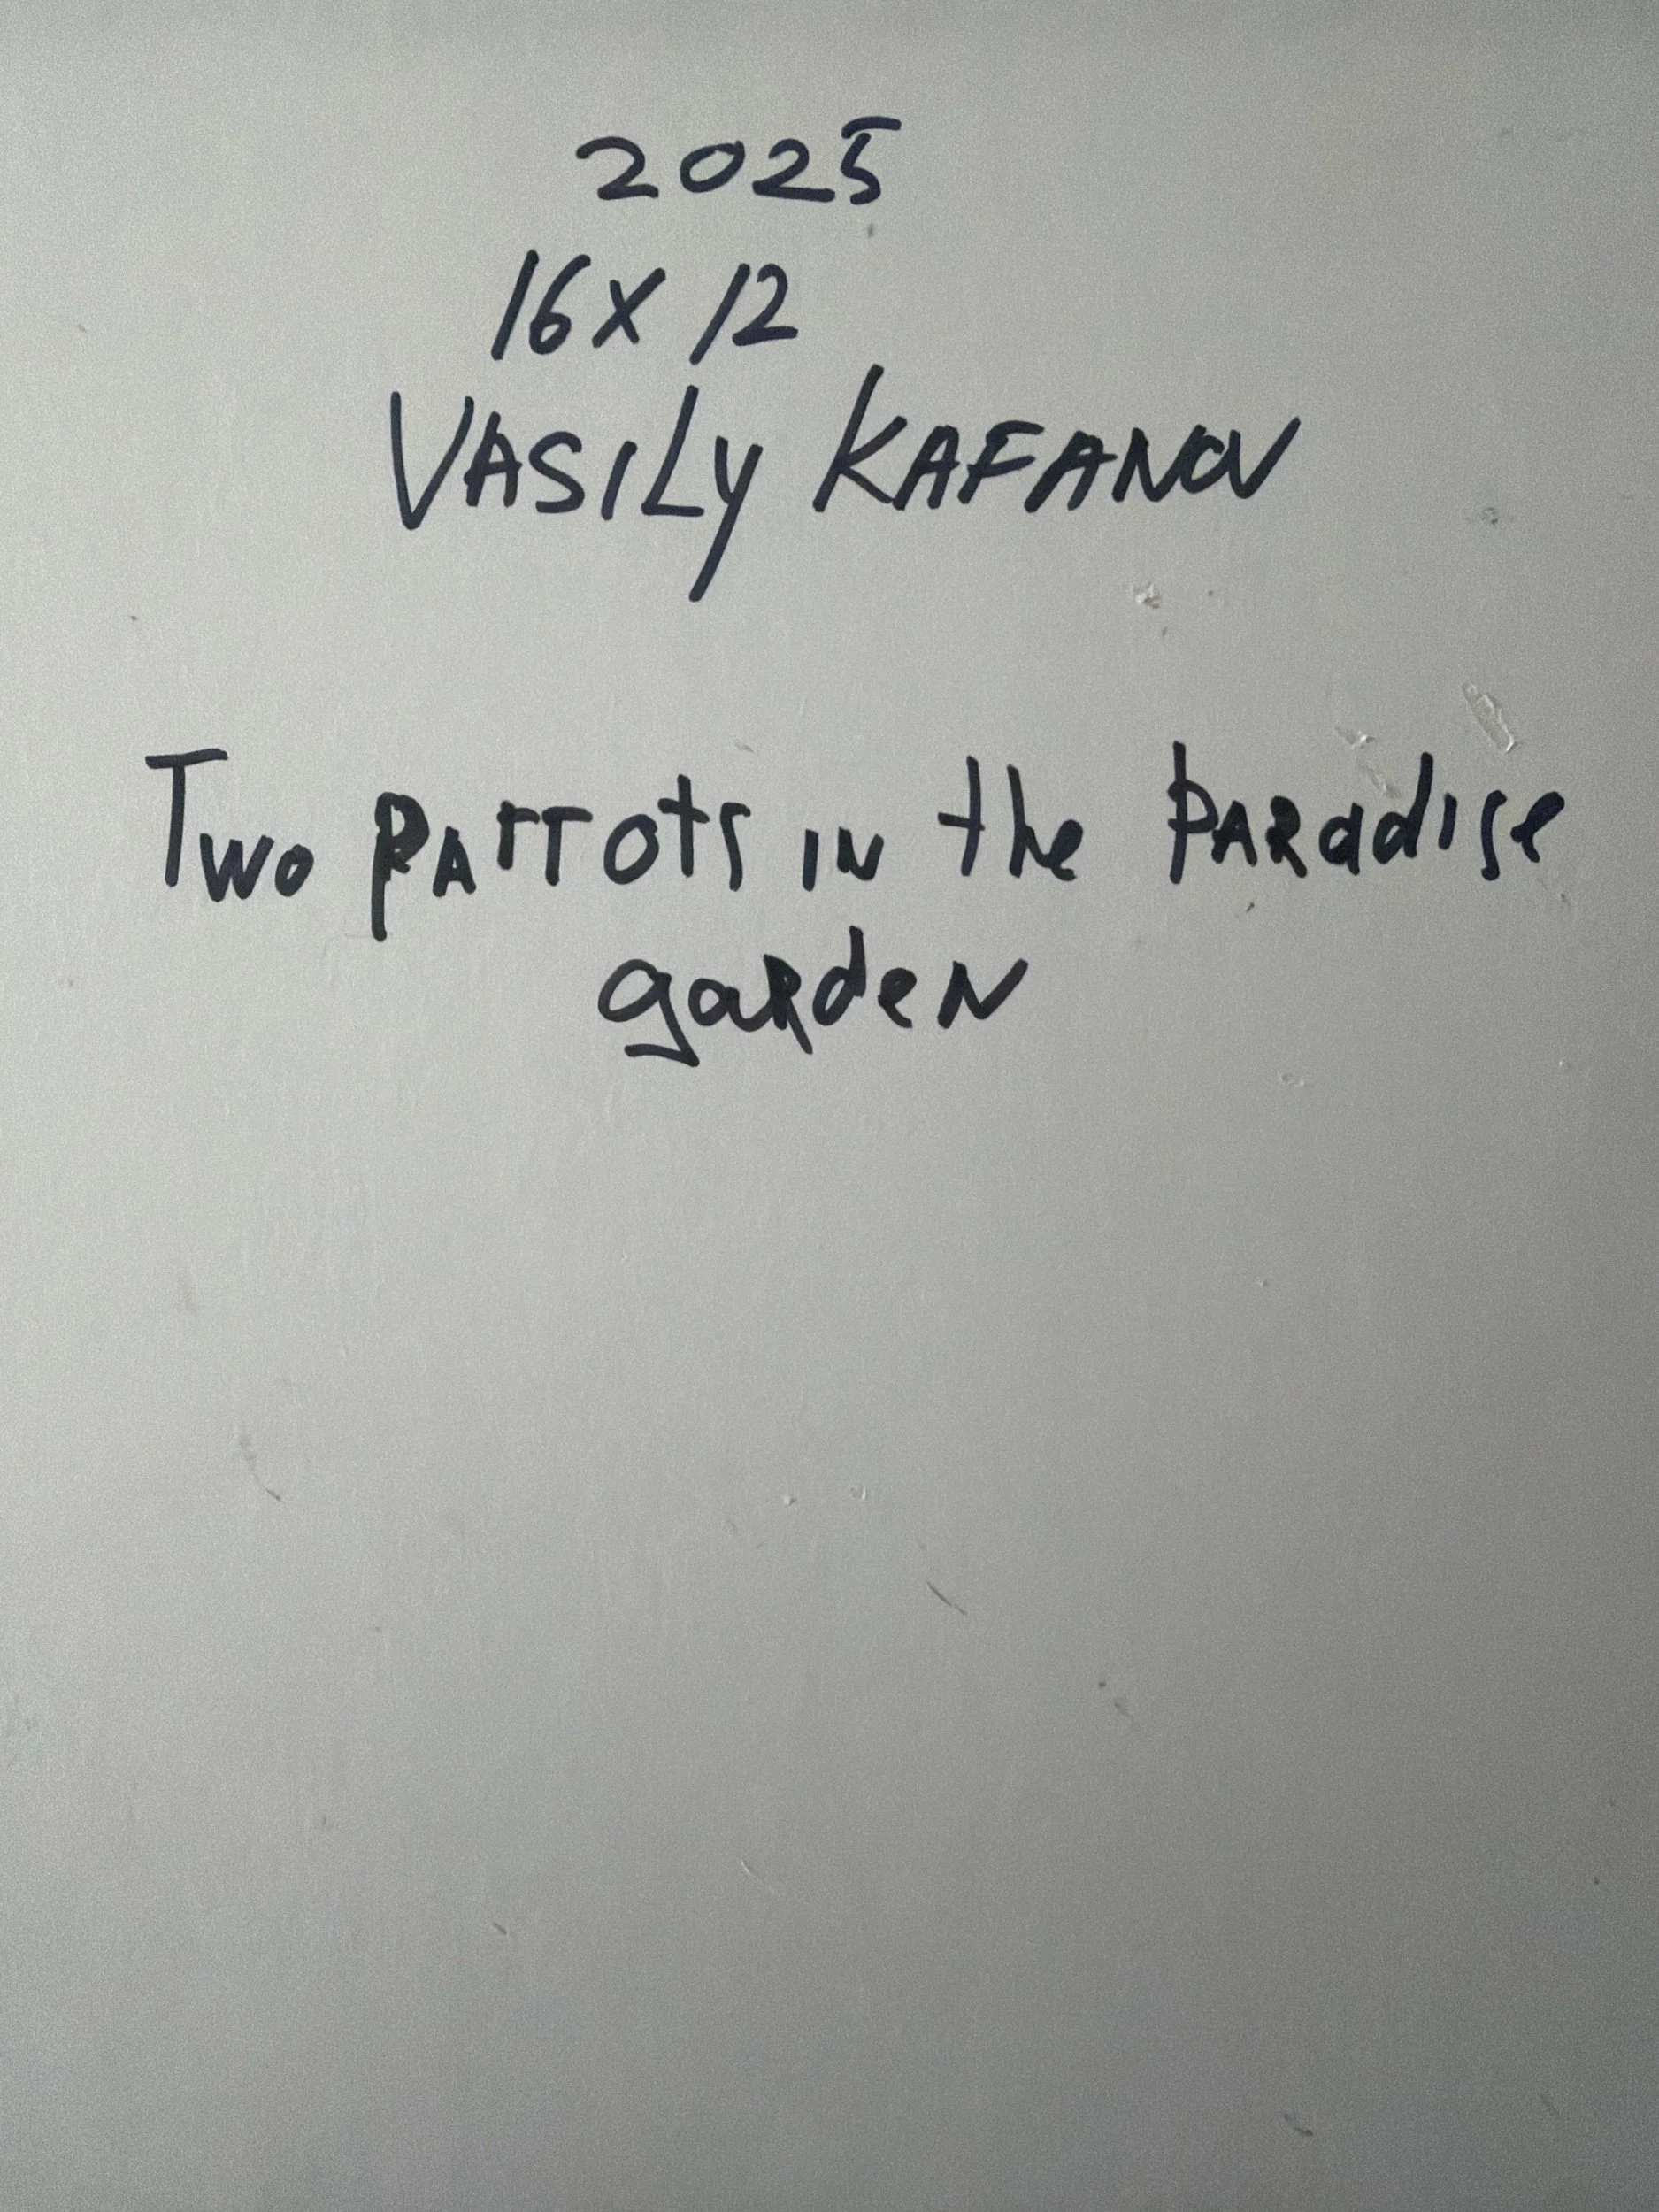 2025
16 X 12
VASILY KAFANOV
Two PARROTS IN the PARadise
gaRdeN